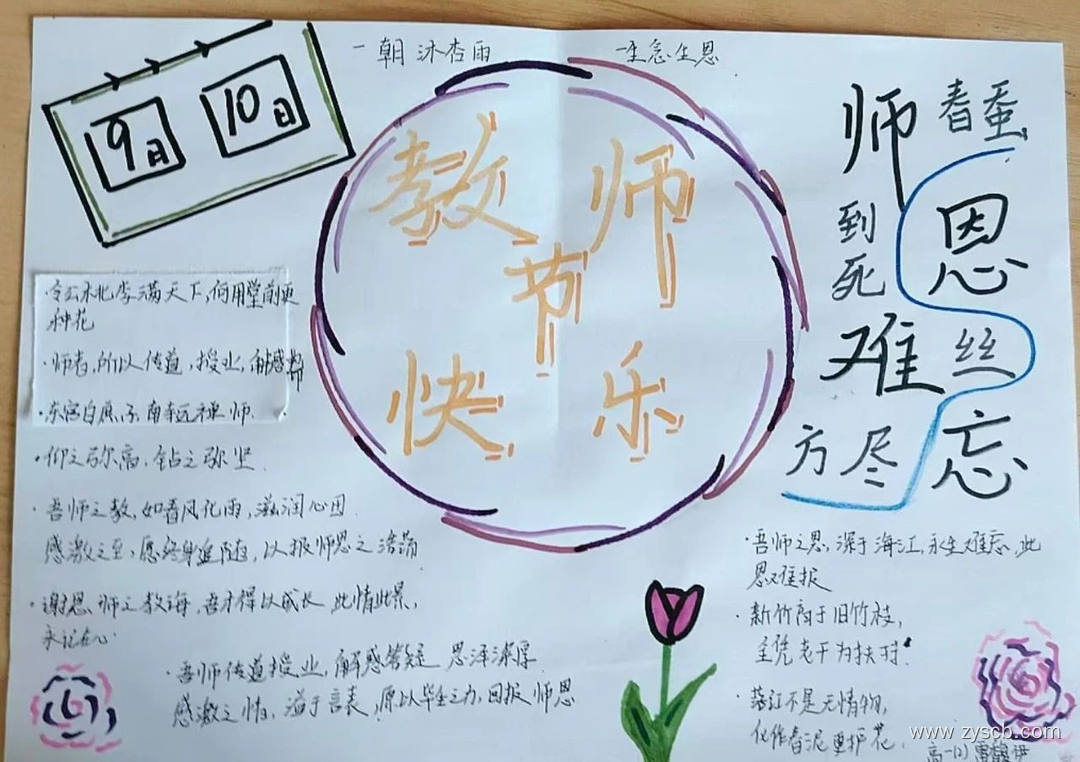 9月 10日
一朝沐杏雨 一生念生恩
教师
节
快乐
师 春蚕
到 恩
死
难 丝
方尽 忘
·令公桃李满天下,何用堂前更
种花
·师者,所以传道,授业,解惑
·东宫白庶子,南寺远禅师.
·仰之弥高,钻之弥坚.
·吾师之教,如春风化雨,滋润心田
感激之至,愿终身追随,以报师恩之浩荡
·谢恩师之教诲,吾才得以成长 此情此景,
永记在心.
·吾师传道授业,解惑答疑 恩泽深厚.
感激之情,溢于言表,愿以毕生之力,回报师恩
·吾师之恩,深于海江,永生难忘,此
恩难报
·新竹高于旧竹枝,
全凭老干为扶持.
·落红不是无情物,
化作春泥更护花.
高一(1)
www.zyscb.com